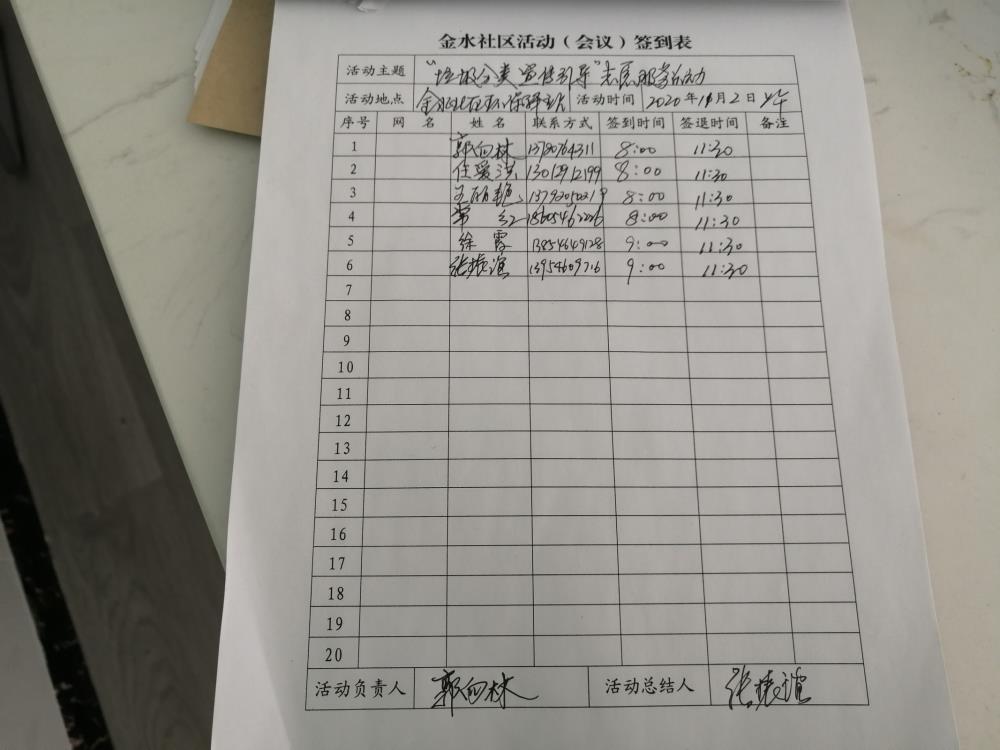 金水社区活动（会议）签到表
活动主题 “垃圾分类宣传引导”志愿服务活动
活动地点 金水社区环保驿站 活动时间 2020年11月2日上午
序号 网名 姓名 联系方式 签到时间 签退时间 备注
1 郭向林 13780764311 8:00 11:30
2 任爱洪 13012912199 8:00 11:30
3 8:00 11:30
4 常红 18605462226 8:00 11:30
5 徐霞 13854649128 9:00 11:30
6 张振谊 13954609716 9:00 11:30
7
8
9
10
11
12
13
14
15
16
17
18
19
20
活动负责人 郭向林 活动总结人 张振谊